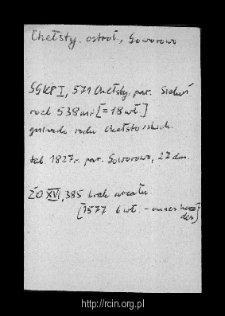 Chełsty, ostroł., Goworowo
SGKP I, 571 Chełsty, par. Sieluń
rod 538 mr [= 18 wł]
gniazdo rodu Chełstowskich.
tab. 1827 r. par. Goworowo, 27 dm
ŹD XVI, 385 brak wzmianki
[1577 6 wł
www.rcin.org.pl